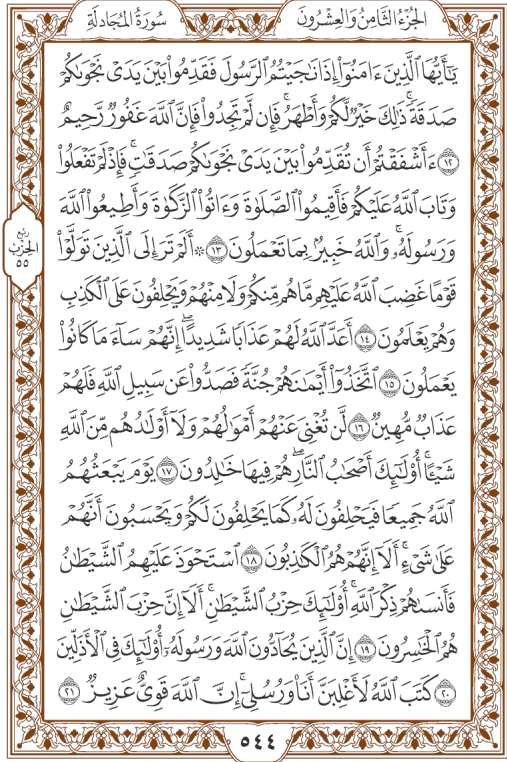 الجُزْءُ الثَّامِنُ وَالعِشْرُونَ
سُورَةُ المُجَادلَةِ
يَٰٓأَيُّهَا ٱلَّذِينَ ءَامَنُوٓاْ إِذَا نَٰجَيۡتُمُ ٱلرَّسُولَ فَقَدِّمُواْ بَيۡنَ يَدَيۡ نَجۡوَىٰكُمۡ
صَدَقَةٗۚ ذَٰلِكَ خَيۡرٞ لَّكُمۡ وَأَطۡهَرُۚ فَإِن لَّمۡ تَجِدُواْ فَإِنَّ ٱللَّهَ غَفُورٞ رَّحِيمٌ
١٢ ءَأَشۡفَقۡتُمۡ أَن تُقَدِّمُواْ بَيۡنَ يَدَيۡ نَجۡوَىٰكُمۡ صَدَقَٰتٖۚ فَإِذۡ لَمۡ تَفۡعَلُواْ
وَتَابَ ٱللَّهُ عَلَيۡكُمۡ فَأَقِيمُواْ ٱلصَّلَوٰةَ وَءَاتُواْ ٱلزَّكَوٰةَ وَأَطِيعُواْ ٱللَّهَ
وَرَسُولَهُۥۚ وَٱللَّهُ خَبِيرُۢ بِمَا تَعۡمَلُونَ ١٣ ۞ أَلَمۡ تَرَ إِلَى ٱلَّذِينَ تَوَلَّوۡاْ
ربع
الحِزْب
٥٥
قَوۡمًا غَضِبَ ٱللَّهُ عَلَيۡهِم مَّا هُم مِّنكُمۡ وَلَا مِنۡهُمۡ وَيَحۡلِفُونَ عَلَى ٱلۡكَذِبِ
وَهُمۡ يَعۡلَمُونَ ١٤ أَعَدَّ ٱللَّهُ لَهُمۡ عَذَابٗا شَدِيدًاۖ إِنَّهُمۡ سَآءَ مَا كَانُواْ
يَعۡمَلُونَ ١٥ ٱتَّخَذُوٓاْ أَيۡمَٰنَهُمۡ جُنَّةٗ فَصَدُّواْ عَن سَبِيلِ ٱللَّهِ فَلَهُمۡ
عَذَابٞ مُّهِينٞ ١٦ لَّن تُغۡنِيَ عَنۡهُمۡ أَمۡوَٰلُهُمۡ وَلَآ أَوۡلَٰدُهُم مِّنَ ٱللَّهِ
شَيۡـًٔاۚ أُوْلَٰٓئِكَ أَصۡحَٰبُ ٱلنَّارِۖ هُمۡ فِيهَا خَٰلِدُونَ ١٧ يَوۡمَ يَبۡعَثُهُمُ
ٱللَّهُ جَمِيعٗا فَيَحۡلِفُونَ لَهُۥ كَمَا يَحۡلِفُونَ لَكُمۡ وَيَحۡسَبُونَ أَنَّهُمۡ
عَلَىٰ شَيۡءٍۚ أَلَآ إِنَّهُمۡ هُمُ ٱلۡكَٰذِبُونَ ١٨ ٱسۡتَحۡوَذَ عَلَيۡهِمُ ٱلشَّيۡطَٰنُ
فَأَنسَىٰهُمۡ ذِكۡرَ ٱللَّهِۚ أُوْلَٰٓئِكَ حِزۡبُ ٱلشَّيۡطَٰنِۚ أَلَآ إِنَّ حِزۡبَ ٱلشَّيۡطَٰنِ
هُمُ ٱلۡخَٰسِرُونَ ١٩ إِنَّ ٱلَّذِينَ يُحَآدُّونَ ٱللَّهَ وَرَسُولَهُۥٓ أُوْلَٰٓئِكَ فِي ٱلۡأَذَلِّينَ
٢٠ كَتَبَ ٱللَّهُ لَأَغۡلِبَنَّ أَنَا۠ وَرُسُلِيٓۚ إِنَّ ٱللَّهَ قَوِيٌّ عَزِيزٞ ٢١
٥٤٤